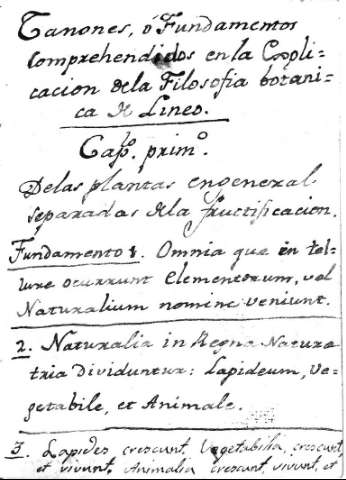 Canones, ó Fundamentos
comprehendidos en la Expli=
cacion de la Filosofia botani=
ca de Lineo.
Capº. primº.
De las plantas en general
separadas de la fructificacion.
Fundamento 1. Omnia quæ in tel=
lure ocurrunt Elementorum, vel
Naturalium nomine veniunt.
2. Naturalia in Regna Naturæ
tria dividuntur: Lapideum, Ve=
getabile, et Animale.
3. Lapides crescunt, Vegetabilia crescunt,
et vivunt, Animalia crescunt, vivunt, et